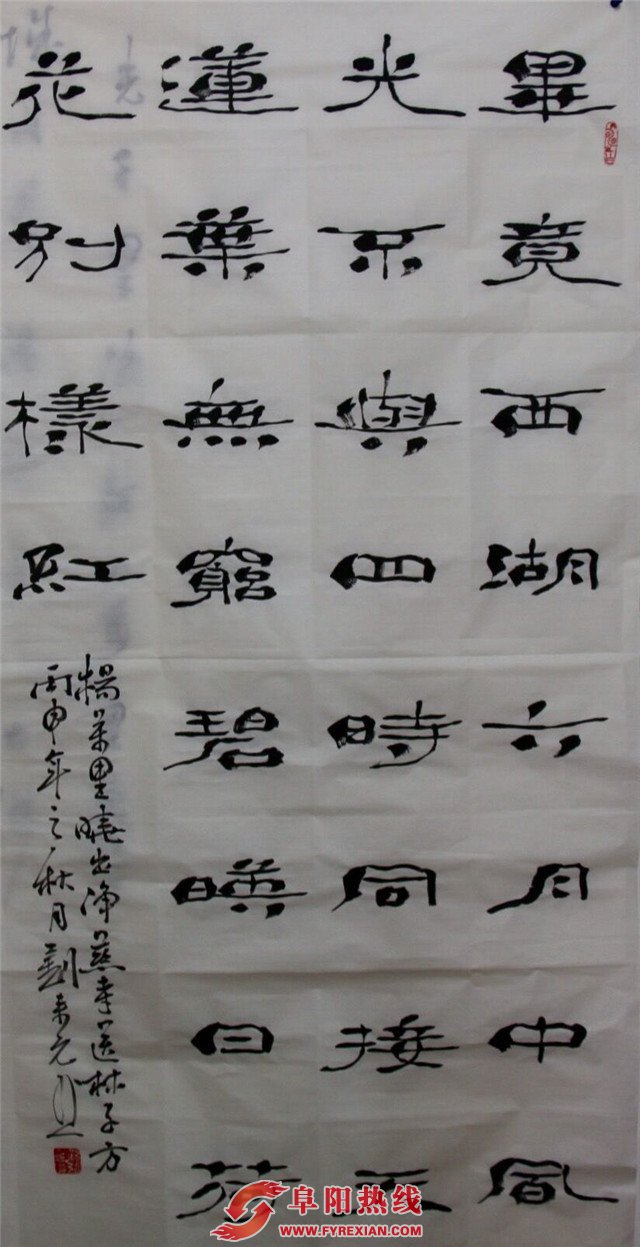 畢竟西湖六月中風
光不與四時同接天
蓮葉無窮碧暎日荷
花別樣紅
楊萬里曉出淨慈寺送林子方
丙申年之秋月劉
阜阳热线
WWW.FYREXIAN.COM